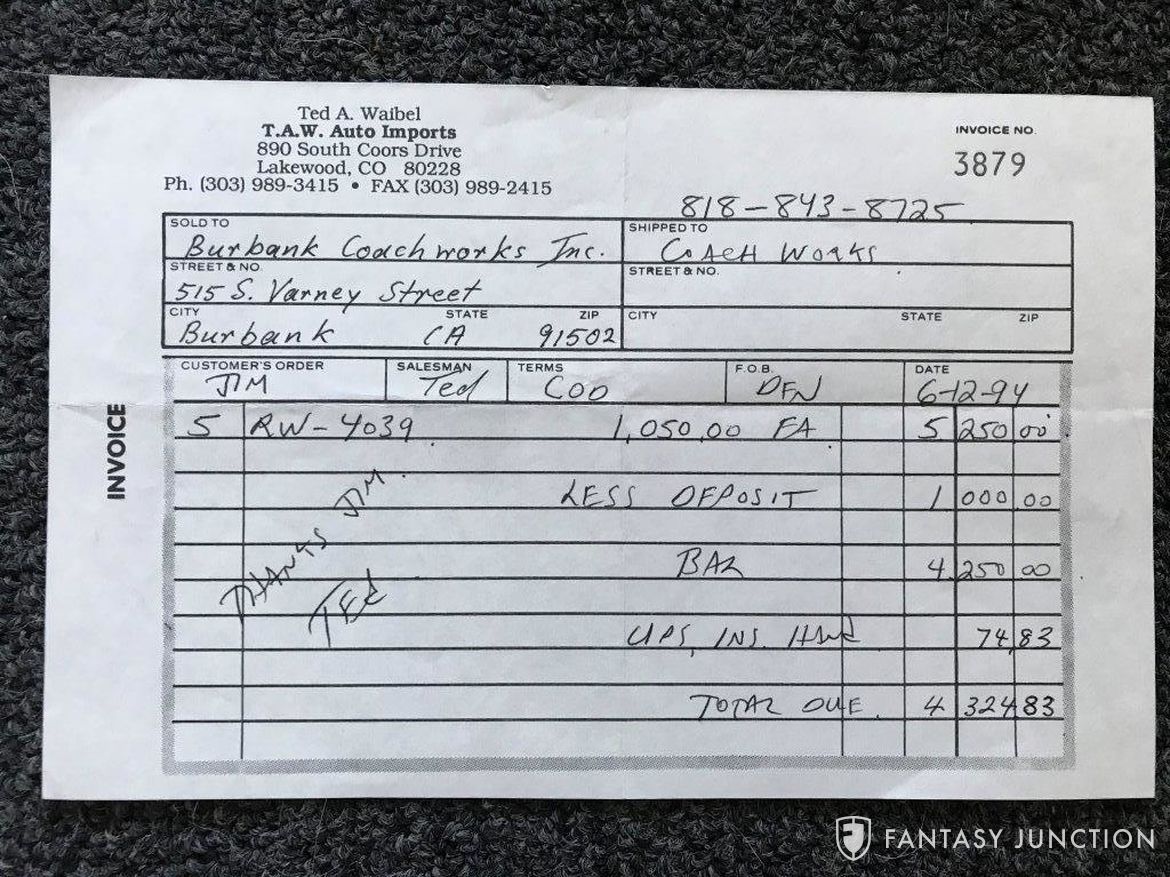 Ted A. Waibel
T.A.W. Auto Imports
890 South Coors Drive
Lakewood, CO 80228
Ph. (303) 989-3415 • FAX (303) 989-2415
INVOICE NO.
3879
818-843-8725
SOLD TO
Burbank Coachworks Inc.
SHIPPED TO
COACH WORKS
STREET & NO.
515 S. Varney Street
STREET & NO.
CITY STATE ZIP
Burbank CA 91502
CITY STATE ZIP
CUSTOMER'S ORDER SALESMAN TERMS F.O.B. DATE
JIM Ted COD DEN 6-12-94
INVOICE
5 RW-4039 1,050.00 EA 5 250 00
LESS DEPOSIT 1 000.00
BAL 4 250 00
THANKS JIM.
TEd
UPS, INS. Hand 74.83
TOTAL DUE 4 324 83
FANTASY JUNCTION